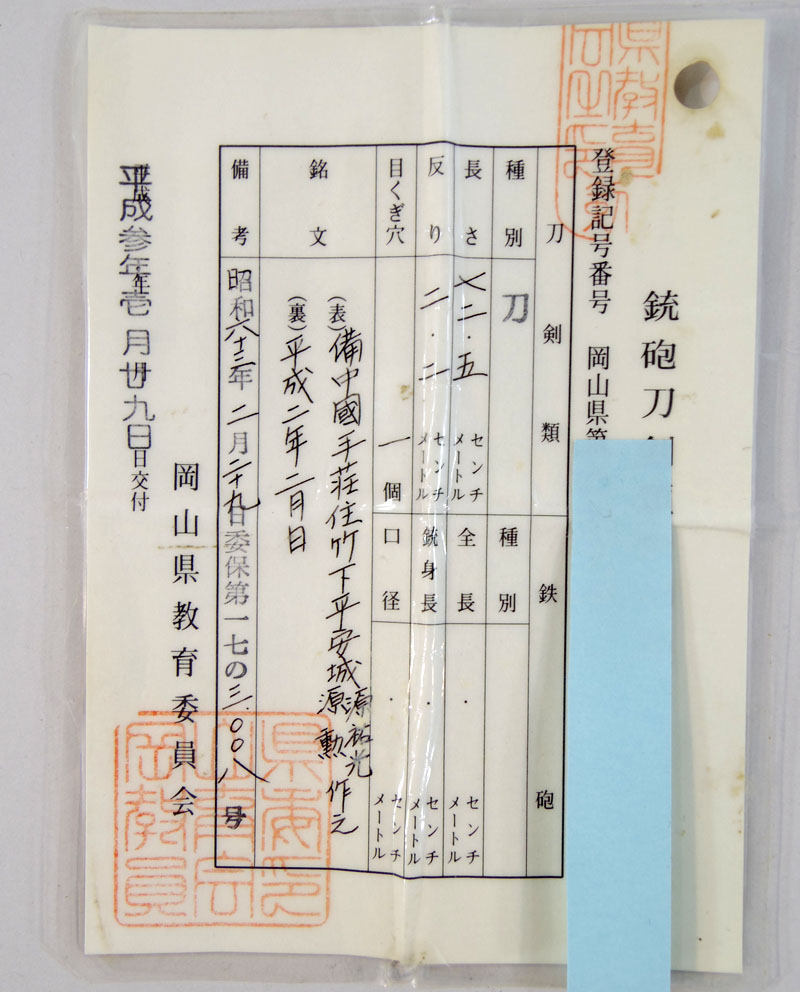 銃砲刀
登録記号番号 岡山県第
刀剣類 鉄砲
種別 刀 種別
長さ 七二・五 センチメートル 全長 ・ センチメートル
反り 二・二 センチメートル 銃身長 ・ センチメートル
目くぎ穴 一個 口径 ・ センチメートル
銘文 (表) 備中國手荘住竹下平安城源祐光源勲作之
(裏) 平成二年二月日
備考 昭和六十三年二月二十九日委保第一七の三〇〇八号
平成参年壱月廿九日交付
岡山県教育委員会